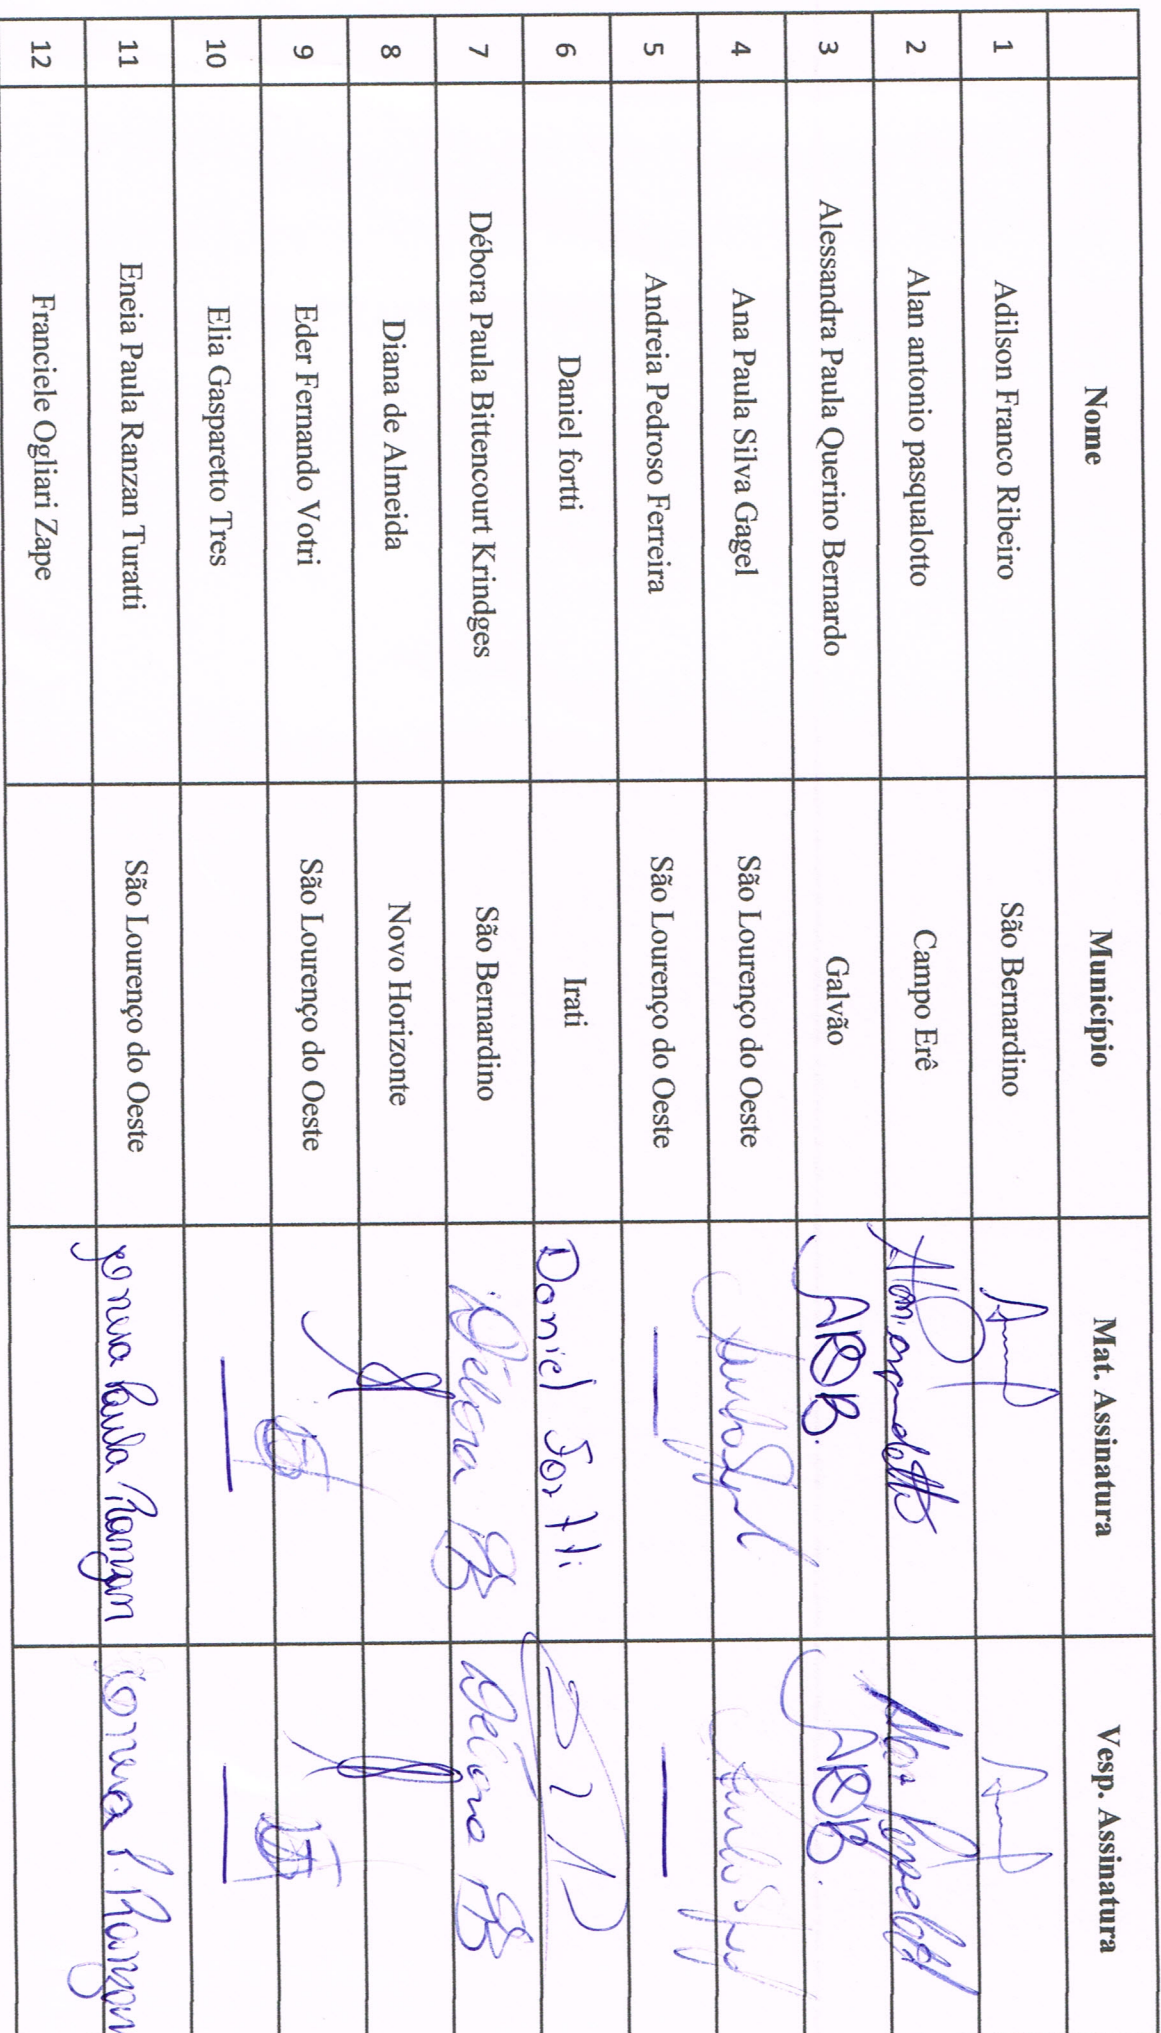 Nome Município Mat. Assinatura Vesp. Assinatura
1 Adilson Franco Ribeiro São Bernardino
2 Alan antonio pasqualotto Campo Erê
3 Alessandra Paula Querino Bernardo Galvão
4 Ana Paula Silva Gagel São Lourenço do Oeste
5 Andreia Pedroso Ferreira São Lourenço do Oeste
6 Daniel fortti Irati Daniel Fortti
7 Débora Paula Bittencourt Krindges São Bernardino Débora
8 Diana de Almeida Novo Horizonte
9 Eder Fernando Votri São Lourenço do Oeste
10 Elia Gasparetto Tres
11 Eneia Paula Ranzan Turatti São Lourenço do Oeste Eneia Paula Ranzan Eneia P. Ranzan
12 Franciele Ogliari Zape